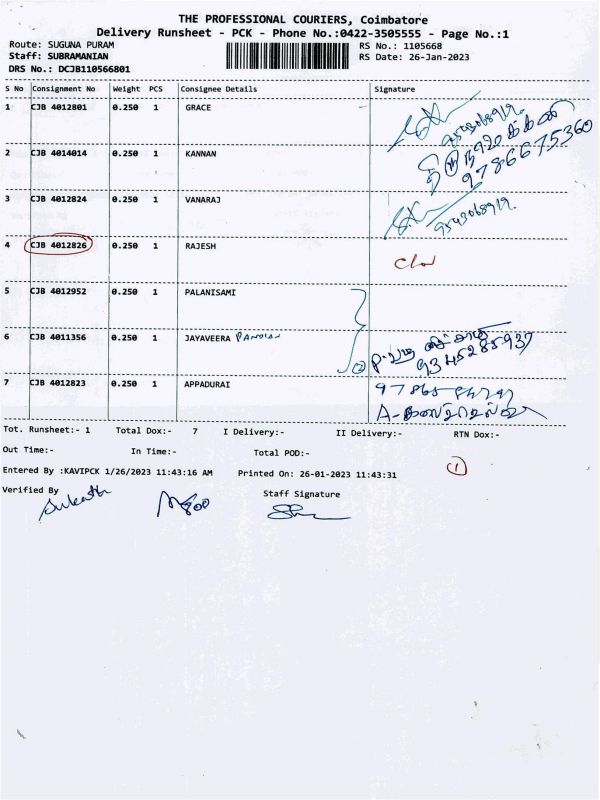 THE PROFESSIONAL COURIERS, Coimbatore
Delivery Runsheet - PCK - Phone No.:0422-3505555 - Page No.:1
Route: SUGUNA PURAM RS No.: 1105668
Staff: SUBRAMANIAN RS Date: 26-Jan-2023
DRS No.: DCJB110566801
S No Consignment No Weight PCS Consignee Details Signature
1 CJB 4012801 0.250 1 GRACE 9543068919.
2 CJB 4014014 0.250 1 KANNAN 9786675360
3 CJB 4012824 0.250 1 VANARAJ 9543068919.
4 CJB 4012826 0.250 1 RAJESH
5 CJB 4012952 0.250 1 PALANISAMI
6 CJB 4011356 0.250 1 JAYAVEERA PANDIAN 9345285937
7 CJB 4012823 0.250 1 APPADURAI
Tot. Runsheet:- 1 Total Dox:- 7 I Delivery:- II Delivery:- RTN Dox:-
Out Time:- In Time:- Total POD:-
Entered By :KAVIPCK 1/26/2023 11:43:16 AM Printed On: 26-01-2023 11:43:31 1
Verified By Staff Signature